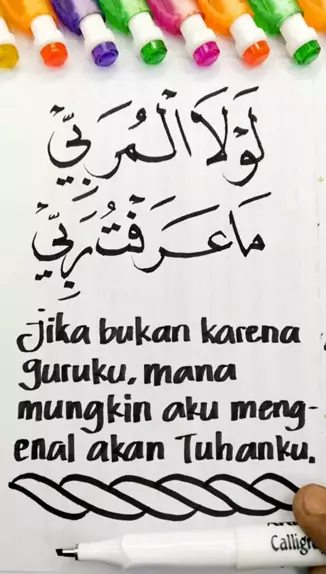 لَوْلَا الْمُرَبِّيْ
مَا عَرَفْتُ رَبِّيْ
jika bukan karena
guruku, mana
mungkin aku meng-
enal akan Tuhanku.